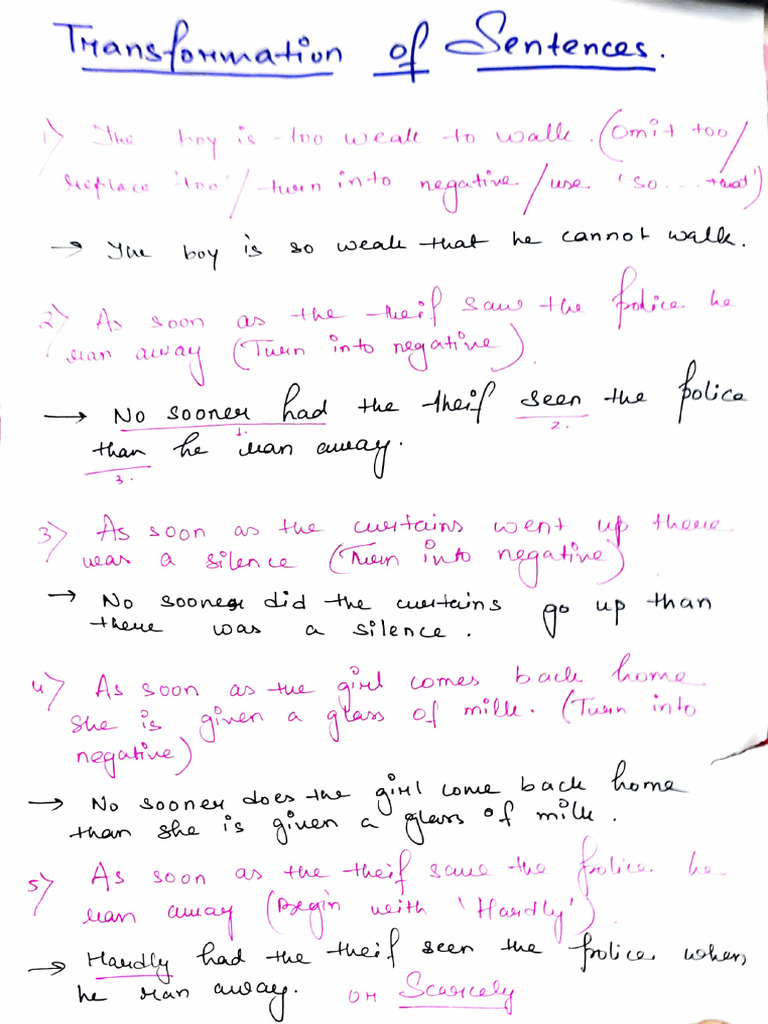 Transformation of Sentences.
1) The boy is too weak to walk. (Omit too/
replace 'too' / turn into negative / use 'so....that')
→ The boy is so weak that he cannot walk.
2) As soon as the theif saw the police he
ran away (Turn into negative).
→ No sooner had the theif seen the police
1. 2.
than he ran away.
3.
3) As soon as the curtains went up there
was a silence (Turn into negative)
→ No sooner did the curtains go up than
there was a silence.
4) As soon as the girl comes back home
she is given a glass of milk. (Turn into
negative)
→ No sooner does the girl come back home
than she is given a glass of milk.
5) As soon as the theif saw the police he
ran away (Begin with 'Hardly')
→ Hardly had the theif seen the police when
he ran away. or Scarcely